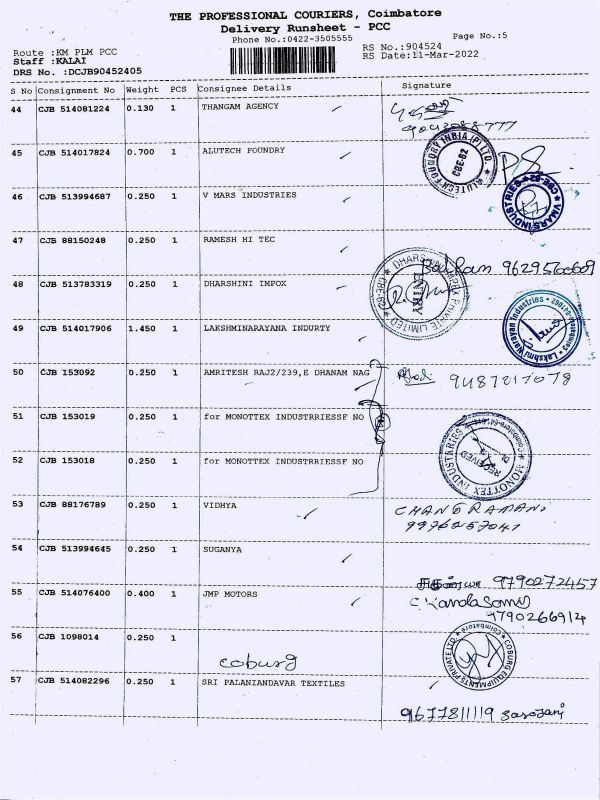 THE PROFESSIONAL COURIERS, Coimbatore
Delivery Runsheet - PCC
Phone No.:0422-3505555
Page No.:5
Route :KM PLM PCC
Staff :KALAI
DRS No. :DCJB90452405
RS No.:904524
RS Date:11-Mar-2022
S No Consignment No Weight PCS Consignee Details Signature
44 CJB 514081224 0.130 1 THANGAM AGENCY
45 CJB 514017824 0.700 1 ALUTECH FOUNDRY
ALUTECH FOUNDRY INDIA (P) LTD. CBE-62
46 CJB 513994687 0.250 1 V MARS INDUSTRIES
VMARS INDUSTRIES
47 CJB 88150248 0.250 1 RAMESH HI TEC
9629560609
48 CJB 513783319 0.250 1 DHARSHINI IMPOX
PRIVATE LIMITED CBE-62 ENTRY
49 CJB 514017906 1.450 1 LAKSHMINARAYANA INDURTY
Lakshmi Narayan Industries
50 CJB 153092 0.250 1 AMRITESH RAJ2/239,E DHANAM NAG
9487217078
51 CJB 153019 0.250 1 for MONOTTEX INDUSTRRIESSF NO
52 CJB 153018 0.250 1 for MONOTTEX INDUSTRRIESSF NO
MONOTTEX INDUSTARIES RECEIVED
53 CJB 88176789 0.250 1 VIDHYA
CHANDRAMANI
9976257041
54 CJB 513994645 0.250 1 SUGANYA
9790272457
55 CJB 514076400 0.400 1 JMP MOTORS
C Kandasamy
9790266914
56 CJB 1098014 0.250 1
coburg
COBURG EQUIPMENTS PRIVATE LTD. Coimbatore
57 CJB 514082296 0.250 1 SRI PALANIANDAVAR TEXTILES
9677811119 Sarojani